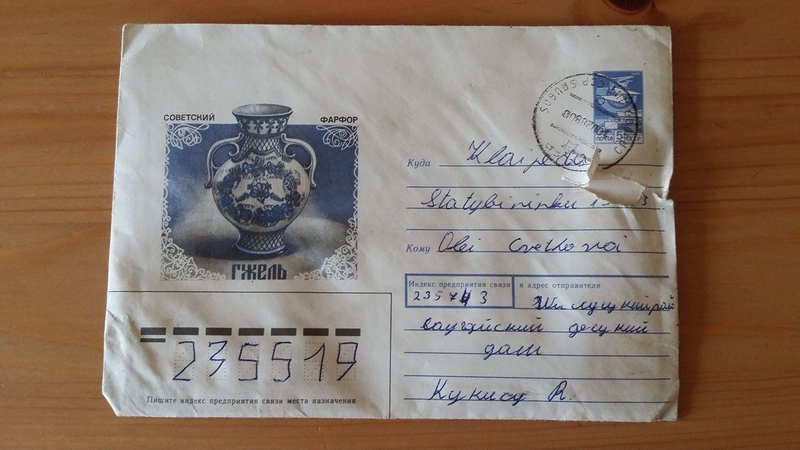 СОВЕТСКИЙ ФАРФОР
ГЖЕЛЬ
Куда Klaipeda
Statybininku
Кому Olei Cvetkovai
Индекс предприятия связи и адрес отправителя
235743 Шилутский рай
детский
дом
Кукису R.
235519
Пишите индекс предприятия связи места назначения